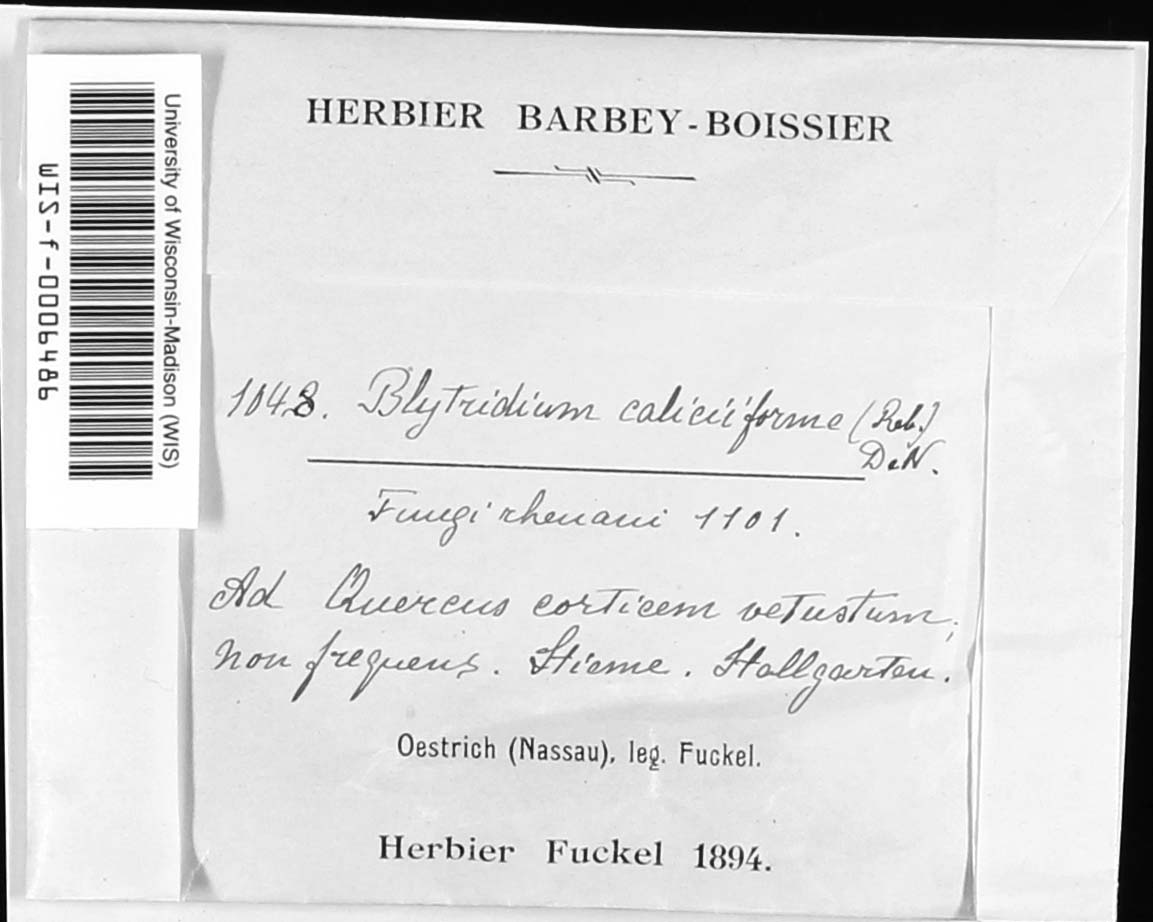 HERBIER BARBEY-BOISSIER
University of Wisconsin-Madison (WIS)
WIS-f-0006486
1048. Blytridium caliciiforme (Reb.)
DeN.
Fungi rhenani 1101.
Ad Quercus corticem vetustum,
non frequens. Hieme. Hallgarten.
Oestrich (Nassau), leg. Fuckel.
Herbier Fuckel 1894.